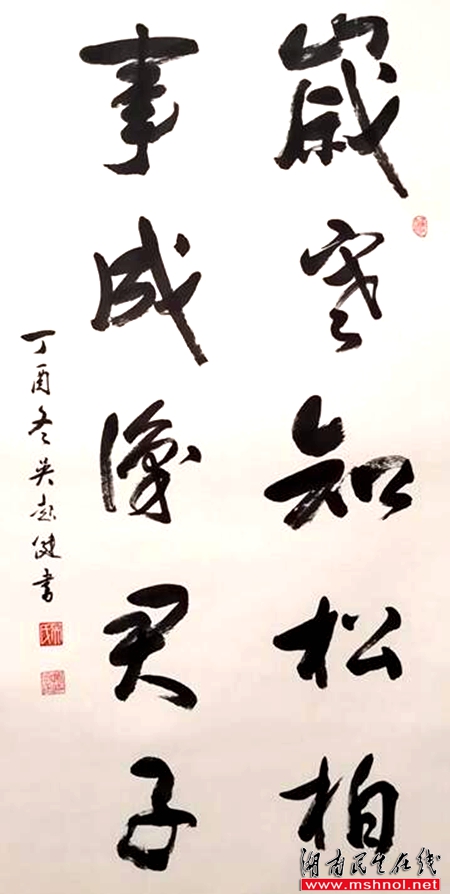 歲寒知松柏
事成識君子
丁酉冬吴起健書
湖南民生在线
www.mshnol.net